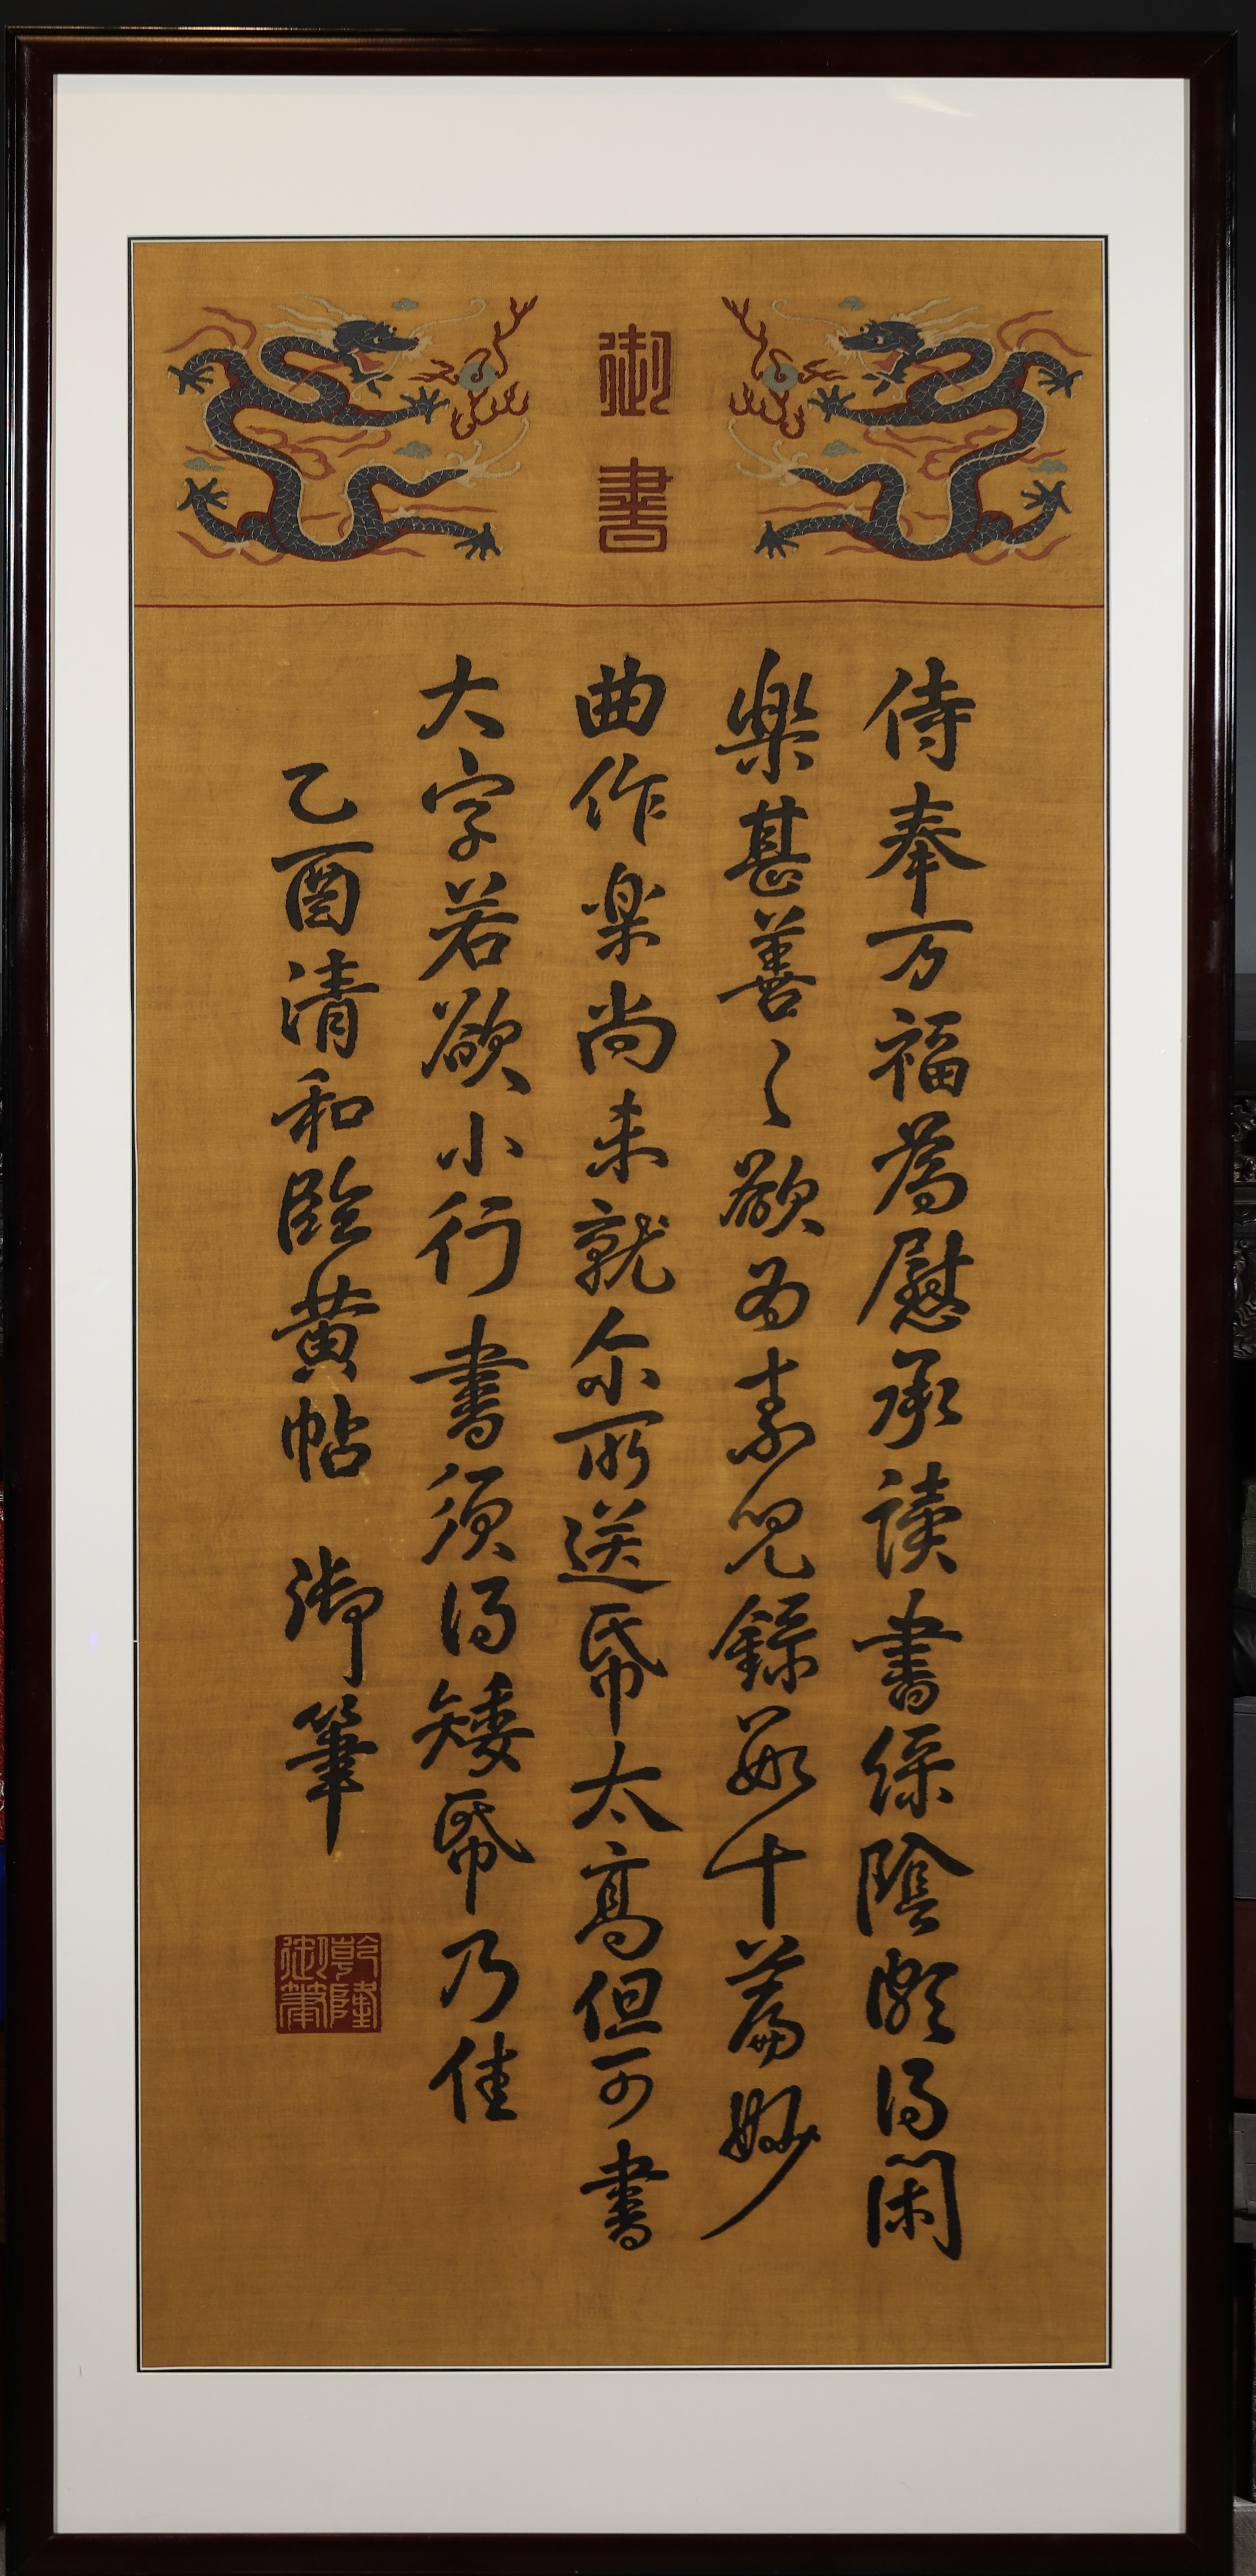 御書
侍奉万福為慰承读書綠陰頗得閑
楽甚善〻欲為素兒錄數十篇妙
曲作楽尚未就尒所送帋太高但可書
大字若欲小行書須得矮帋乃佳
乙酉清和臨黄帖 御筆
乾隆御筆